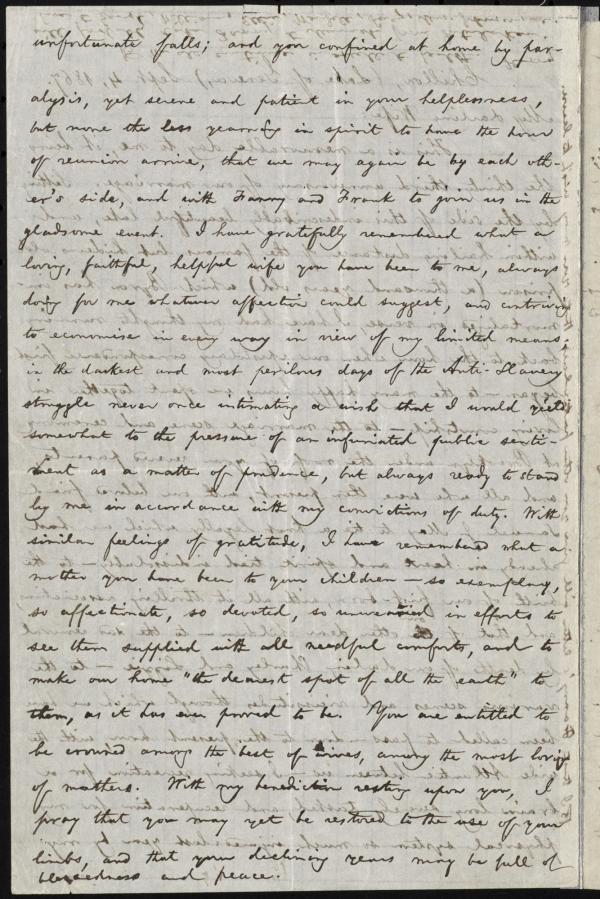 unfortunate falls; and you confined at home by par-
alysis, yet serene and patient in your helplessness,
but none the less yearning in spirit to have the hour
of reunion arrive, that we may again be by each oth-
er's side, and with Fanny and Frank to join us in the
gladsome event. I have gratefully remembered what a
loving, faithful, helpful wife you have been to me, always
doing for me whatever affection could suggest, and contriving
to economise in every way in view of my limited means -
in the darkest and most perilous days of the Anti-Slavery
struggle never once intimating a wish that I would yield
somewhat to the pressure of an infuriated public senti-
ment as a matter of prudence, but always ready to stand
by me in accordance with my convictions of duty. With
similar feelings of gratitude, I have remembered what a
mother you have been to your children — so exemplary,
so affectionate, so devoted, so unwearied in efforts to
see them supplied with all needful comforts, and to
make our home "the dearest spot of all the earth" to
them, as it has ever proved to be. You are entitled to
be crowned among the best of wives, among the most loving
of mothers. With my benediction resting upon you, I
pray that you may yet be restored to the use of your
limbs, and that your declining years may be full of
blessedness and peace.